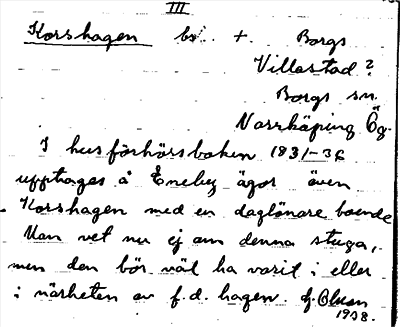 III
Korshagen bs. + Borgs
Villastad?
Borgs sn.
Norrköping Ög.
I husförhörsboken 1831-36
upptages å Eneby ägor även
Korshagen med en daglönare boende
Man vet nu ej om denna stuga,
men den bör väl ha varit i eller
i närheten av f.d. hagen.
1938.